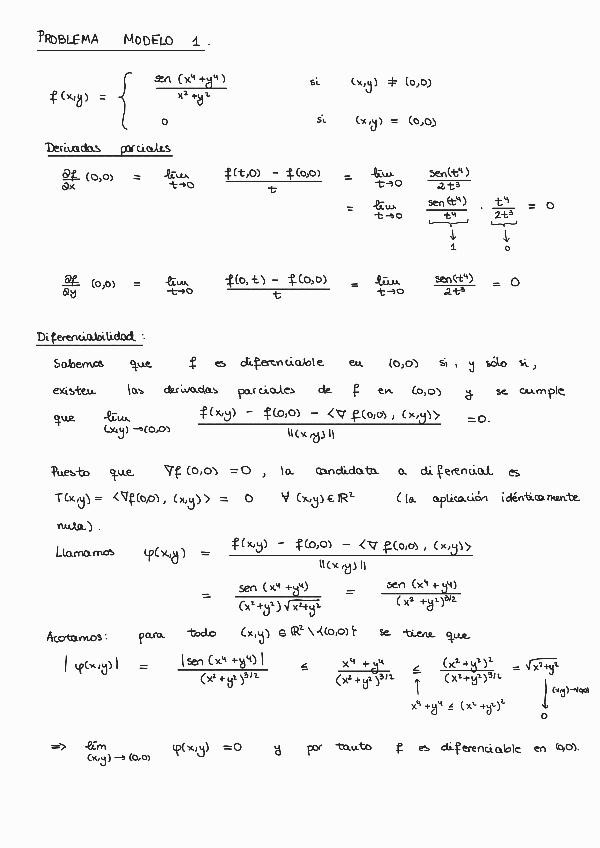 PROBLEMA MODELO 1.
f(x,y) = { sen (x⁴+y⁴) / x²+y² si (x,y) ≠ (0,0)
0 si (x,y) = (0,0)
Derivadas parciales
∂f/∂x (0,0) = lím t→0 f(t,0) - f(0,0) / t = lím t→0 sen(t⁴) / 2t³
= lím t→0 sen(t⁴) / t⁴ · t⁴ / 2t³ = 0
↓ ↓
1 0
∂f/∂y (0,0) = lím t→0 f(0,t) - f(0,0) / t = lím t→0 sen(t⁴) / 2t³ = 0
Diferenciabilidad:
Sabemos que f es diferenciable en (0,0) si, y sólo si,
existen las derivadas parciales de f en (0,0) y se cumple
que lím (x,y)→(0,0) f(x,y) - f(0,0) - <∇f(0,0), (x,y)> / ||(x,y)|| = 0.
Puesto que ∇f(0,0) = 0, la candidata a diferencial es
T(x,y) = <∇f(0,0), (x,y)> = 0 ∀ (x,y) ∈ ℝ² (la aplicación idénticamente
nula).
Llamamos φ(x,y) = f(x,y) - f(0,0) - <∇f(0,0), (x,y)> / ||(x,y)||
= sen (x⁴+y⁴) / (x²+y²)√x²+y² = sen (x⁴+y⁴) / (x²+y²)^3/2
Acotamos: para todo (x,y) ∈ ℝ² \ {(0,0)} se tiene que
|φ(x,y)| = |sen (x⁴+y⁴)| / (x²+y²)^3/2 ≤ x⁴+y⁴ / (x²+y²)^3/2 ≤ (x²+y²)² / (x²+y²)^3/2 = √x²+y²
↑ x⁴+y⁴ ≤ (x²+y²)² ↓ (x,y)→(0,0)
0
=> lím (x,y)→(0,0) φ(x,y) = 0 y por tanto f es diferenciable en (0,0).